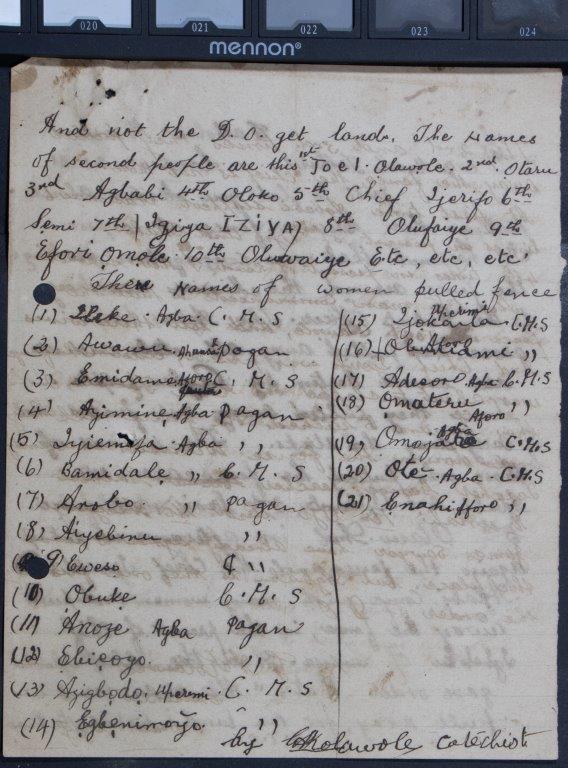 020 021 022 023 024
mennon®
And not the D.O. get land. The names
of second people are this 1st Joel. Olawole. 2nd. Otaru
3rd Agbabi 4th Oloko 5th Chief Ijerifo 6th
Semi 7th (Iziya IZIYA) 8th Olufaiye 9th
Efori omole. 10th Oluwaiye Etc, etc, etc.
These names of women pulled fence
(1) Ileke. Agba. C.M.S
(2) Awawu pagan
(3) Emidame Aforo C.M.S
(4) Ayimine, Agba pagan
(5) Iyiemofa. Agba ,,
(6) Bamidale ,, C.M.S
(7) Arobo ,, pagan
(8) Aiyebinu ,,
(9) Eweso ₵ ,,
(10) Obuke C.M.S
(11) Anoje Agba pagan
(12) Ebisogo. ,,
(13) Ajigbodo. C.M.S
(14) Egbenimoyo. ,,
(15) Ijokanla. C.M.S
(16) ,,
(17) Adesoro Agba C.M.S
(18) Omateru Aforo ,,
(19) Agba C.M.S
(20) Ote. Agba. C.M.S
(21) Enahi Afforo ,,
by Kolawole Catechist